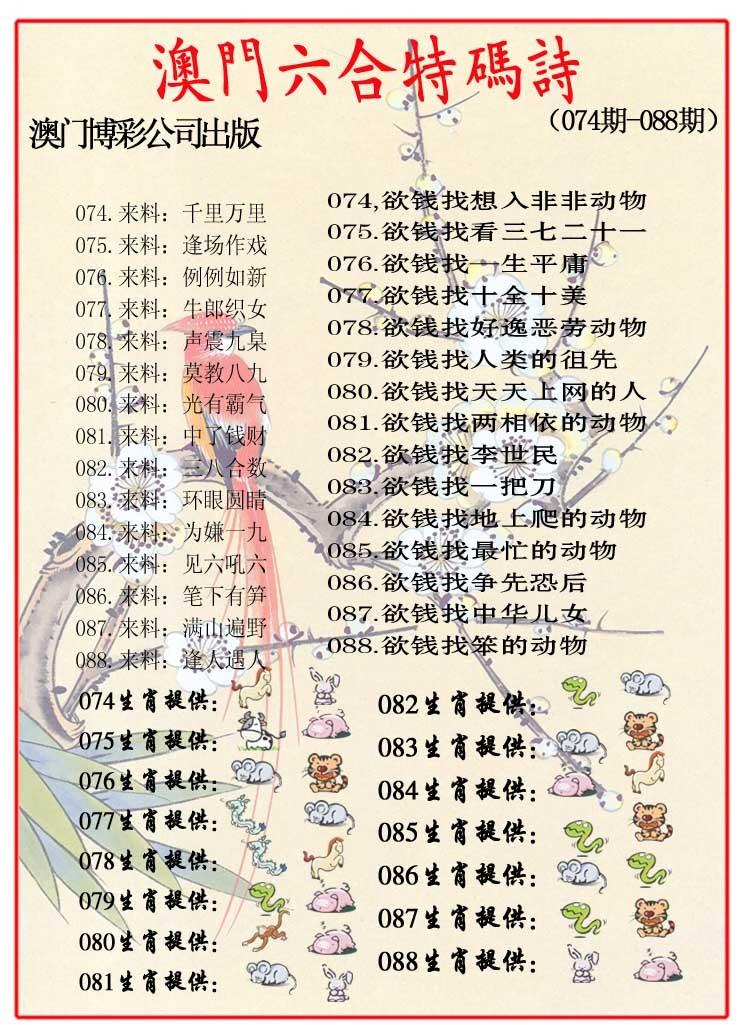 澳門六合特碼詩
澳门博彩公司出版
（074期-088期）
074.来料：千里万里
075.来料：逢场作戏
076.来料：例例如新
077.来料：牛郎织女
078.来料：声震九臬
079.来料：莫教八九
080.来料：光有霸气
081.来料：中了钱财
082.来料：三八合数
083.来料：环眼圆睛
084.来料：为嫌一九
085.来料：见六吼六
086.来料：笔下有笋
087.来料：满山遍野
088.来料：逢人遇人
074,欲钱找想入非非动物
075.欲钱找看三七二十一
076.欲钱找一生平庸
077.欲钱找十全十美
078.欲钱找好逸恶劳动物
079.欲钱找人类的祖先
080.欲钱找天天上网的人
081.欲钱找两相依的动物
082.欲钱找李世民
083.欲钱找一把刀
084.欲钱找地上爬的动物
085.欲钱找最忙的动物
086.欲钱找争先恐后
087.欲钱找中华儿女
088.欲钱找笨的动物
074生肖提供：
075生肖提供：
076生肖提供：
077生肖提供：
078生肖提供：
079生肖提供：
080生肖提供：
081生肖提供：
082生肖提供：
083生肖提供：
084生肖提供：
085生肖提供：
086生肖提供：
087生肖提供：
088生肖提供：